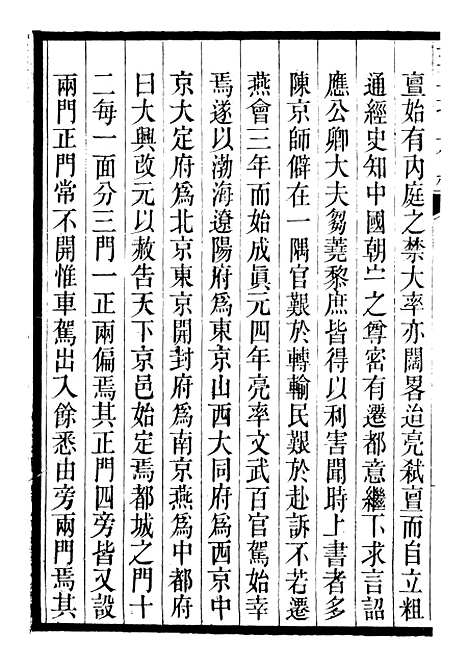 亶始有內庭之禁大率亦闊畧迨亮弑亶而自立粗
通經史知中國朝亠之尊密有遷都意繼下求言詔
應公卿大夫芻蕘黎庶皆得以利害聞時上書者多
陳京師僻在一隅官艱於轉輸民艱於赴訴不若遷
燕會三年而始成眞元四年亮率文武百官駕始幸
焉遂以渤海遼陽府爲東京山西大同府爲西京中
京大定府爲北京東京開封府爲南京燕爲中都府
曰大興改元以赦告天下京邑始定焉都城之門十
二每一面分三門一正兩偏焉其正門四旁皆又設
兩門正門常不開惟車駕出入餘悉由旁兩門焉其